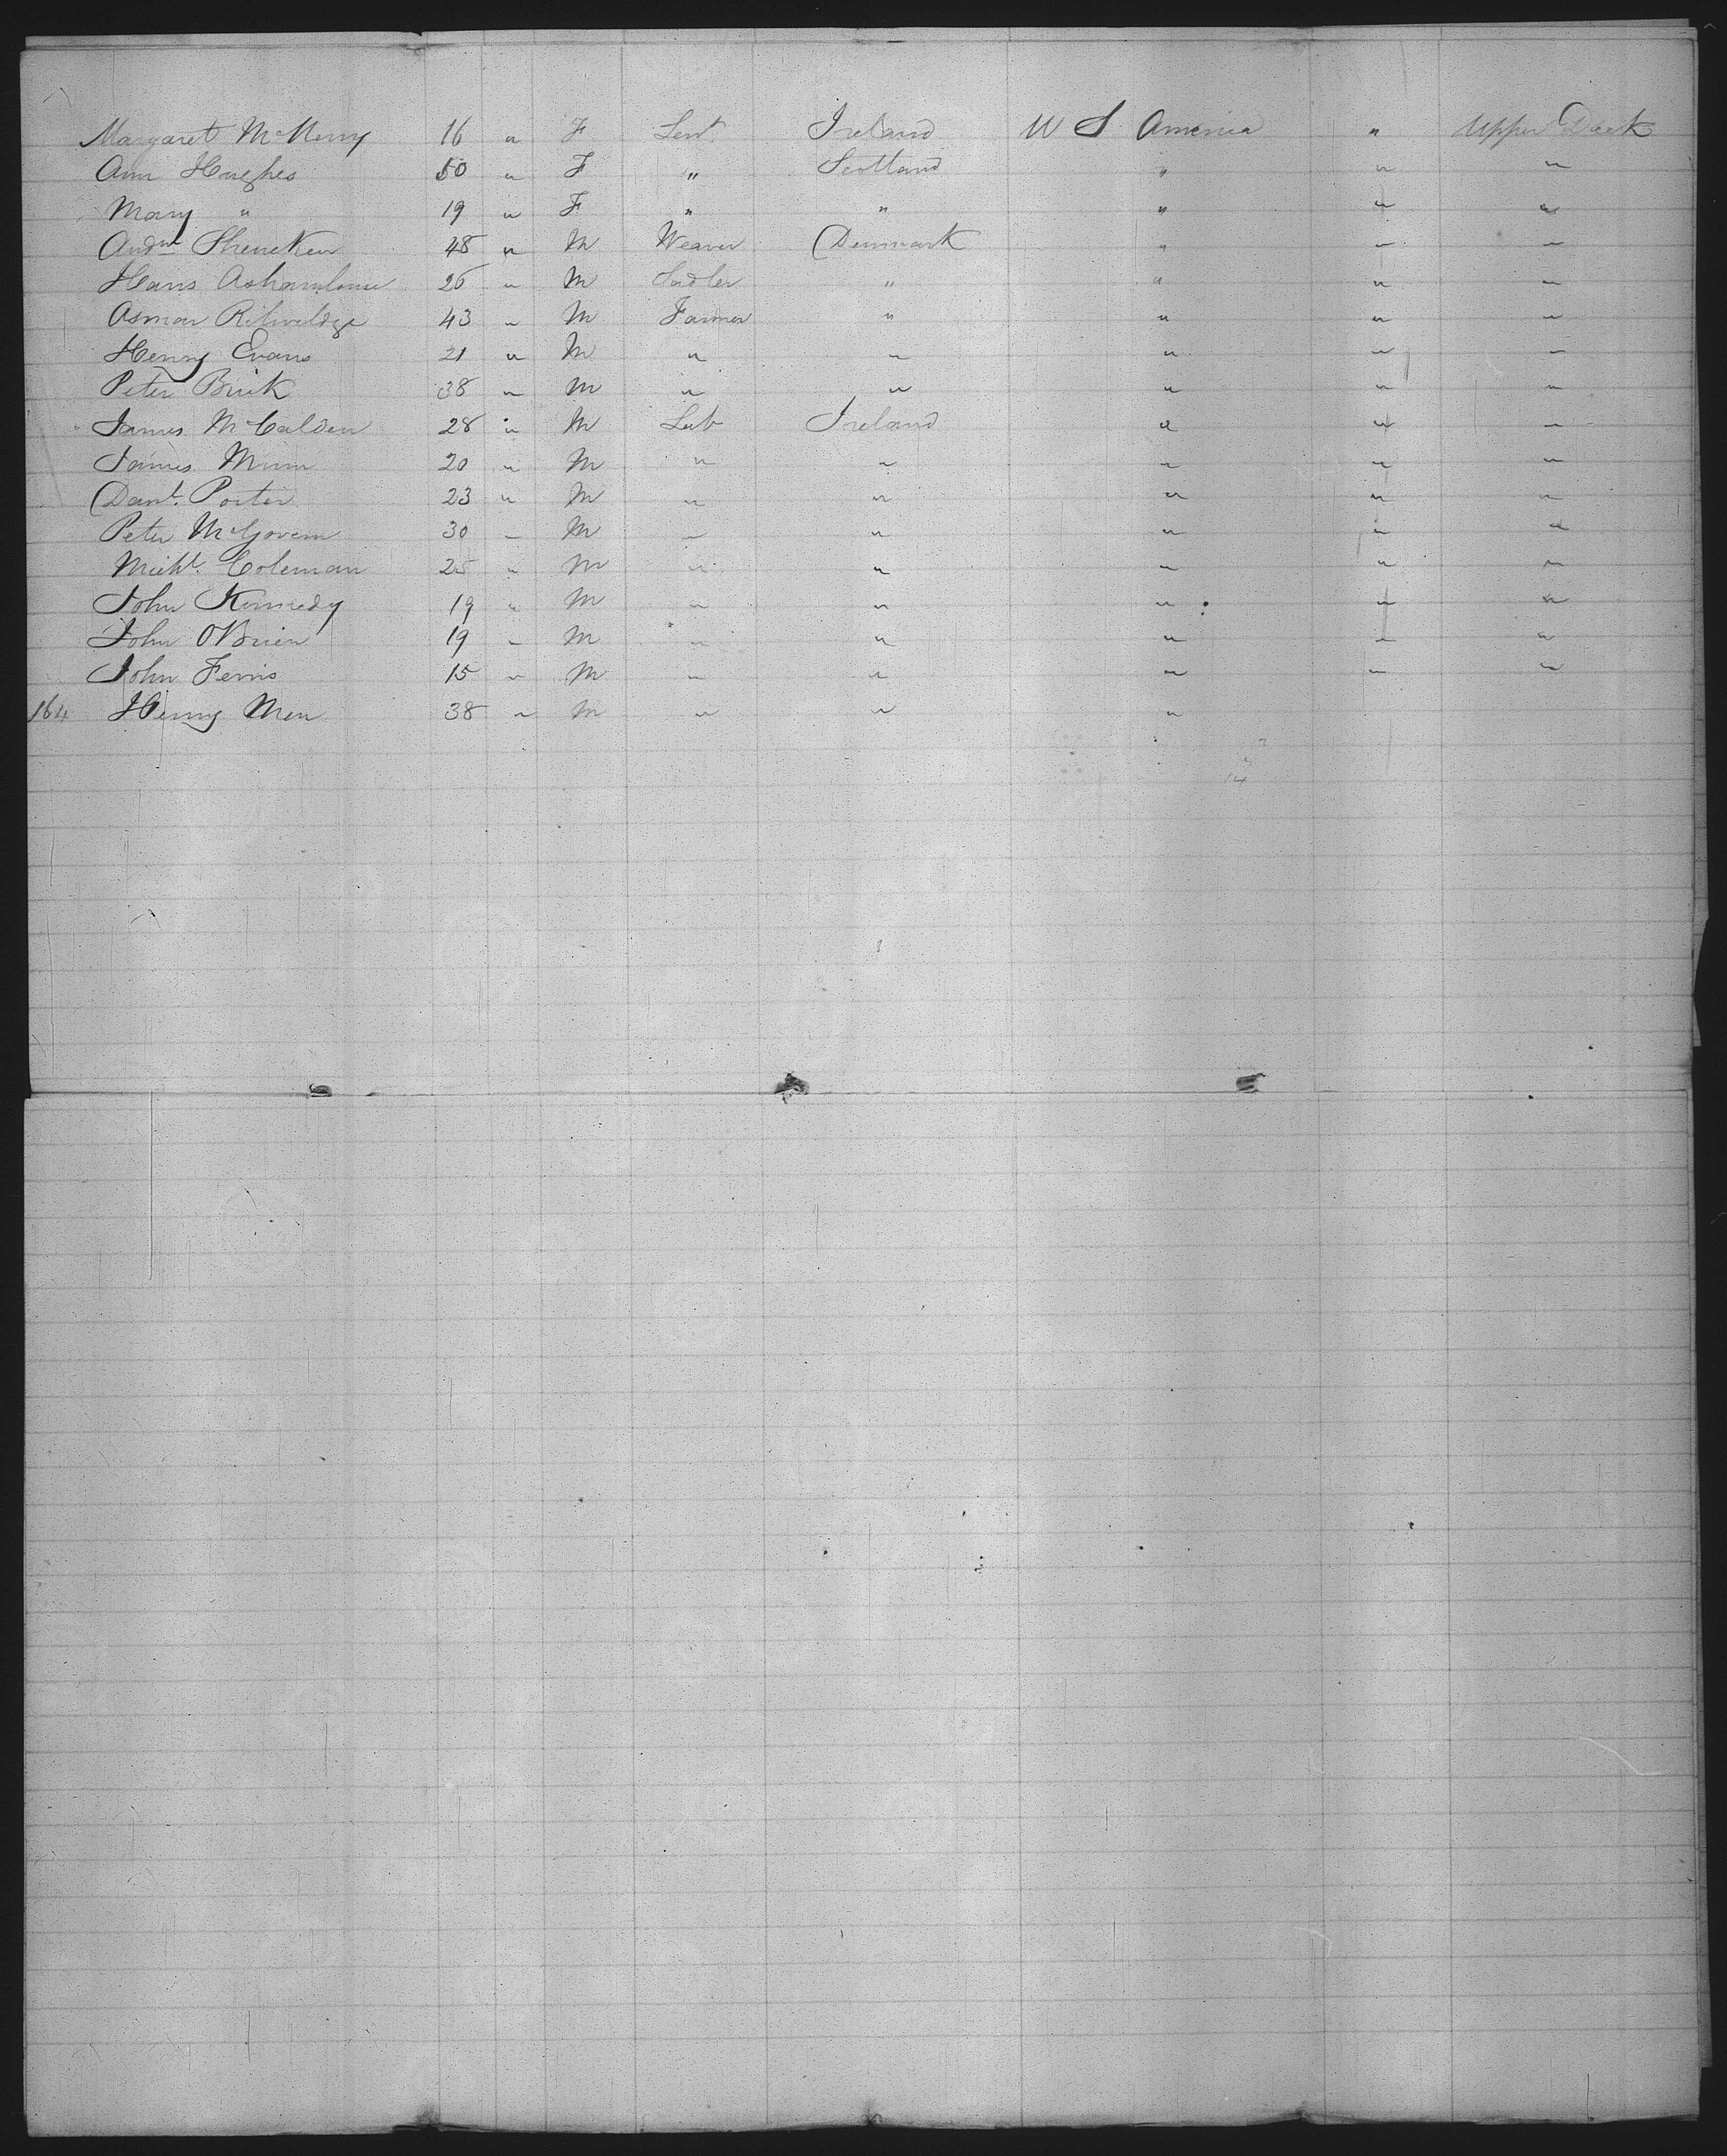 Margaret McKenny 16 " F Sert. Ireland U S America " Upper Deck
Ann Hughes 50 " F " Scotland " " "
Mary " 19 " F " " " " "
48 " M Weaver Denmark " " "
Hans 26 " M Sadler " " " "
43 " M Farmer " " " "
Henry Evans 21 " M " " " " "
Peter 38 " M " " " " "
James McCalden 28 " M Lab Ireland " " "
James 20 " M " " " " "
Danl. Porter 23 " M " " " " "
Peter McGovern 30 " M " " " " "
Michl. Coleman 25 " M " " " " "
John Kennedy 19 " M " " " " "
John OBrien 19 " M " " " " "
John Ferris 15 " M " " " " "
164 Henry 38 " M " " "
14